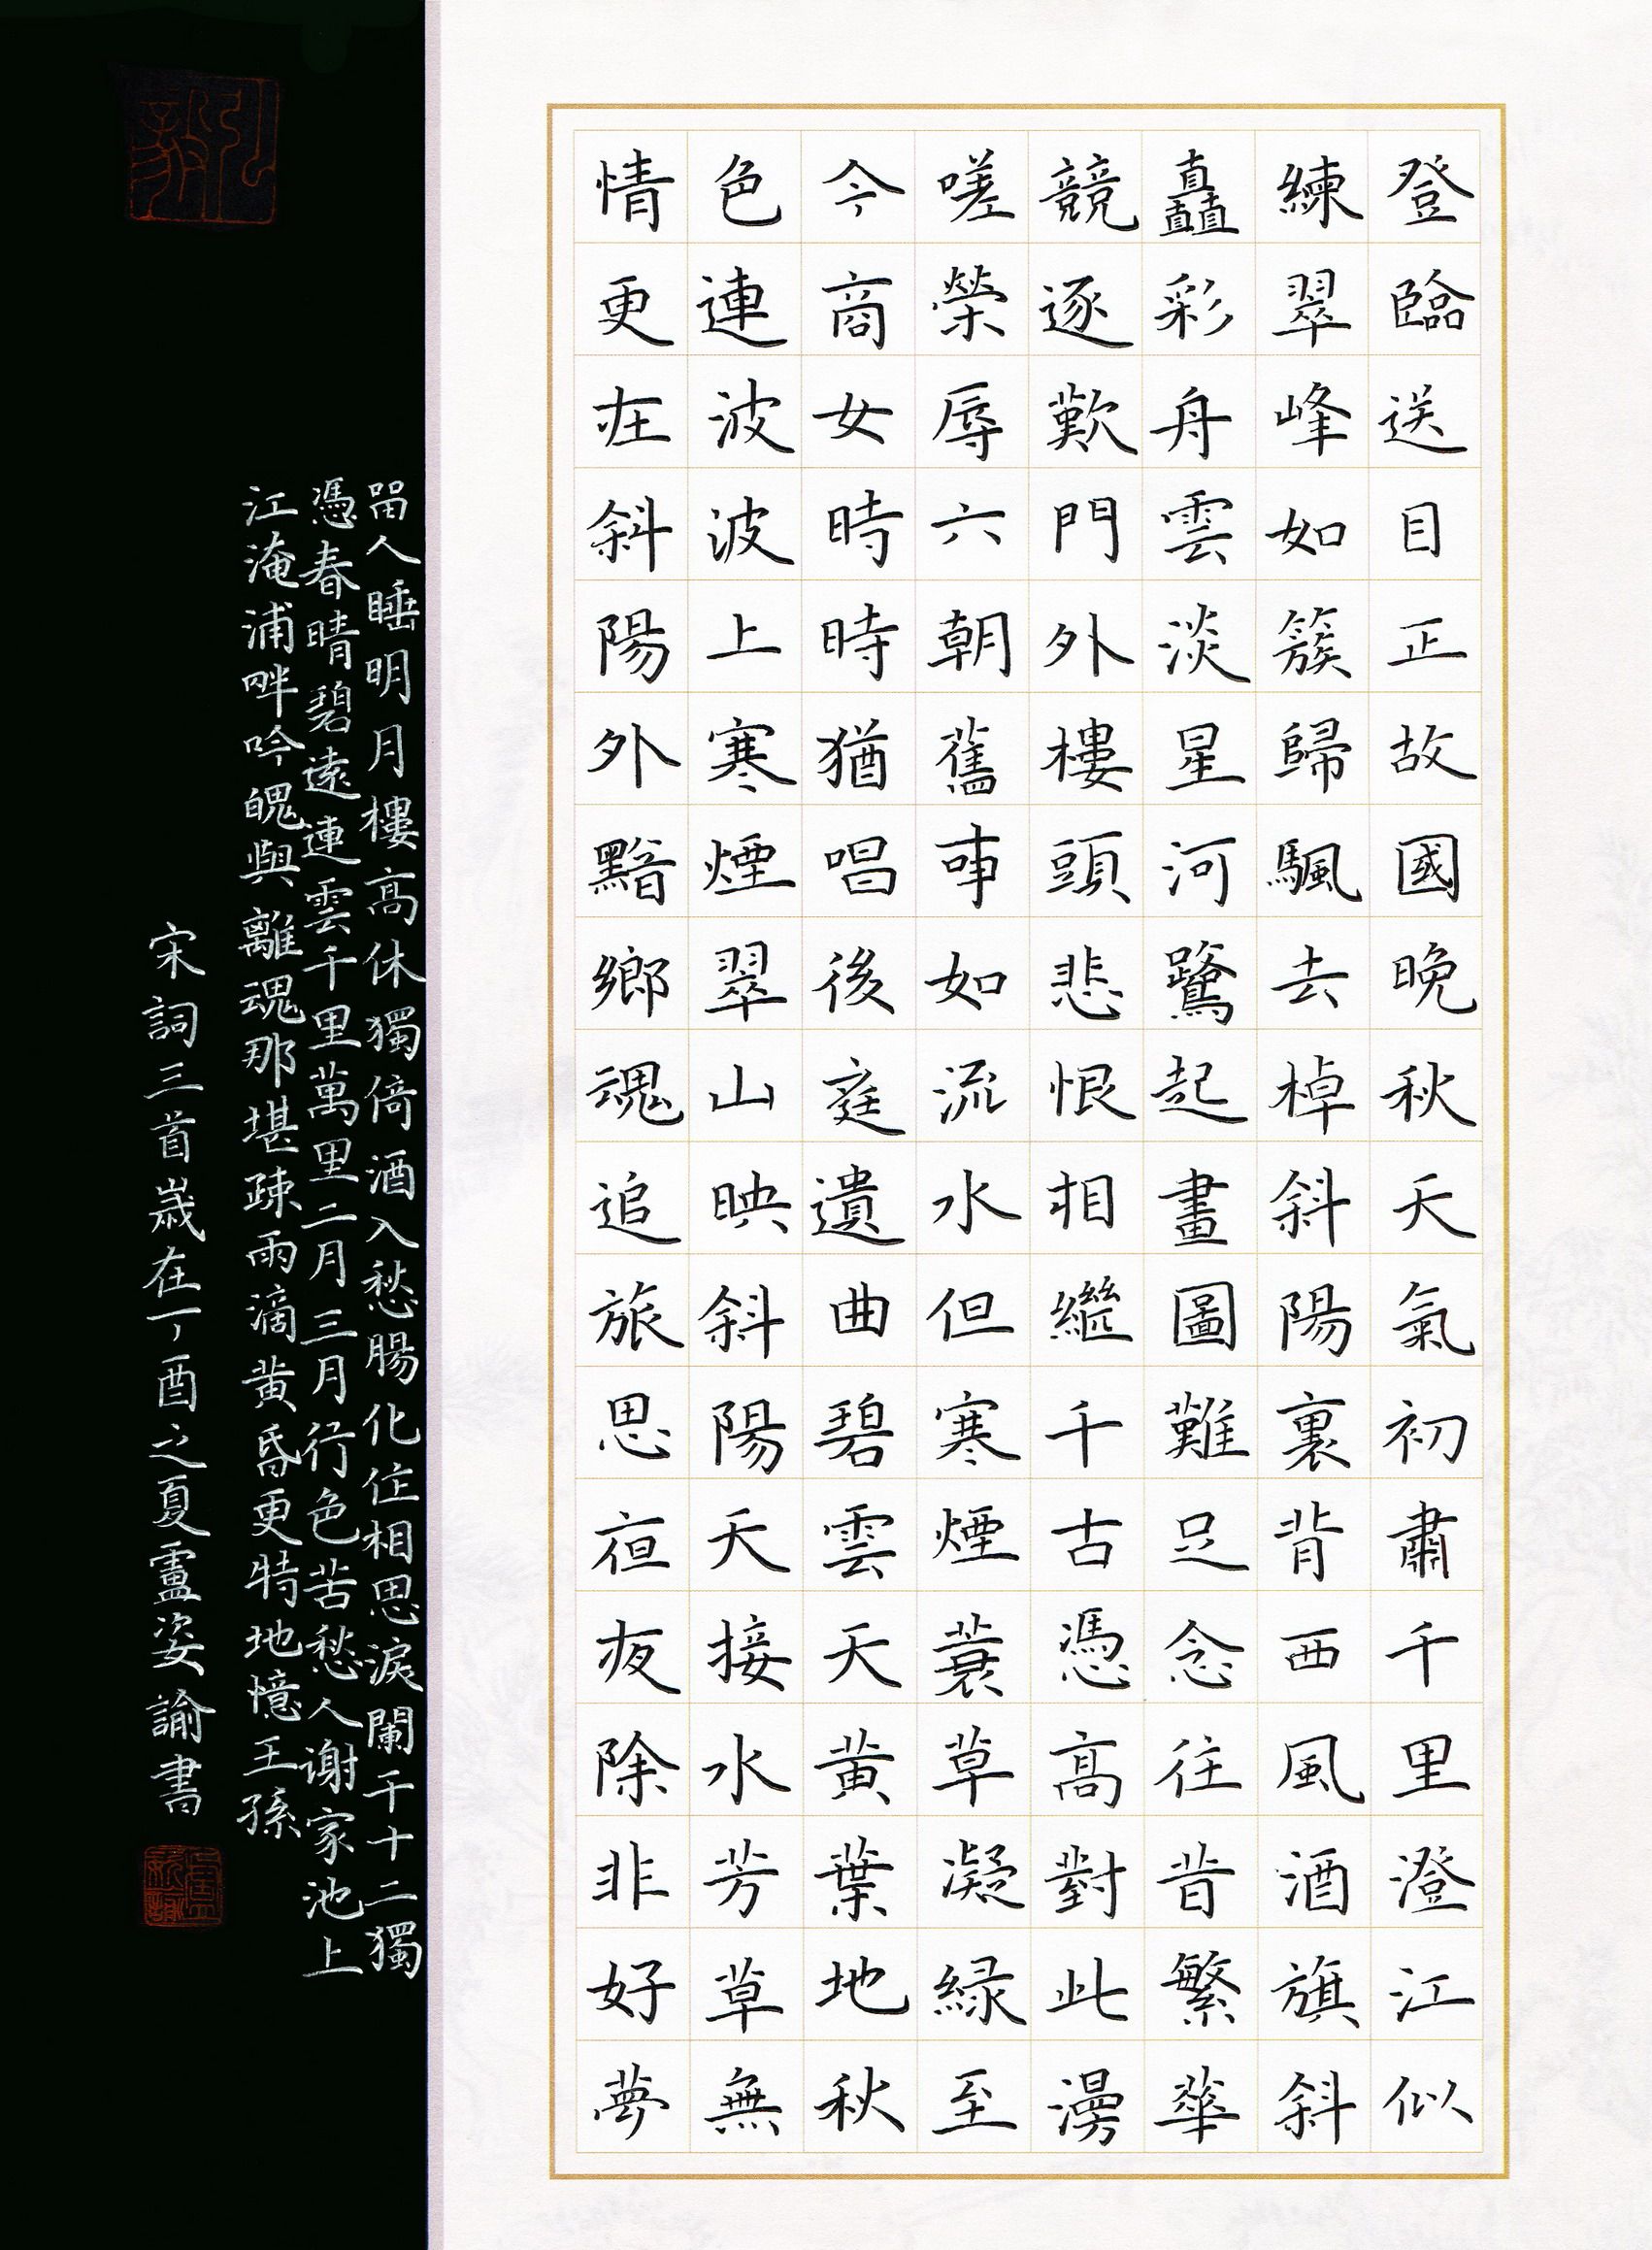 登臨送目正故國晚秋天氣初肅千里澄江似
練翠峰如簇歸颿去棹斜陽裏背西風酒旗斜
矗彩舟雲淡星河鷺起畫圖難足念往昔繁華
競逐歎門外樓頭悲恨相繼千古憑高對此漫
嗟榮辱六朝舊事如流水但寒煙蓑草凝綠至
今商女時時猶唱後庭遺曲碧雲天黃葉地秋
色連波波上寒煙翠山映斜陽天接水芳草無
情更在斜陽外黯鄉魂追旅思亱夜除非好夢
畱人睡明月樓高休獨倚酒入愁腸化作相思淚闌干十二獨
憑春晴碧遠連雲千里萬里二月三月行色苦愁人謝家池上
江淹浦畔吟魄與離魂那堪疎雨滴黃昏更特地憶王孫
宋詞三首歲在丁酉之夏盧姿諭書